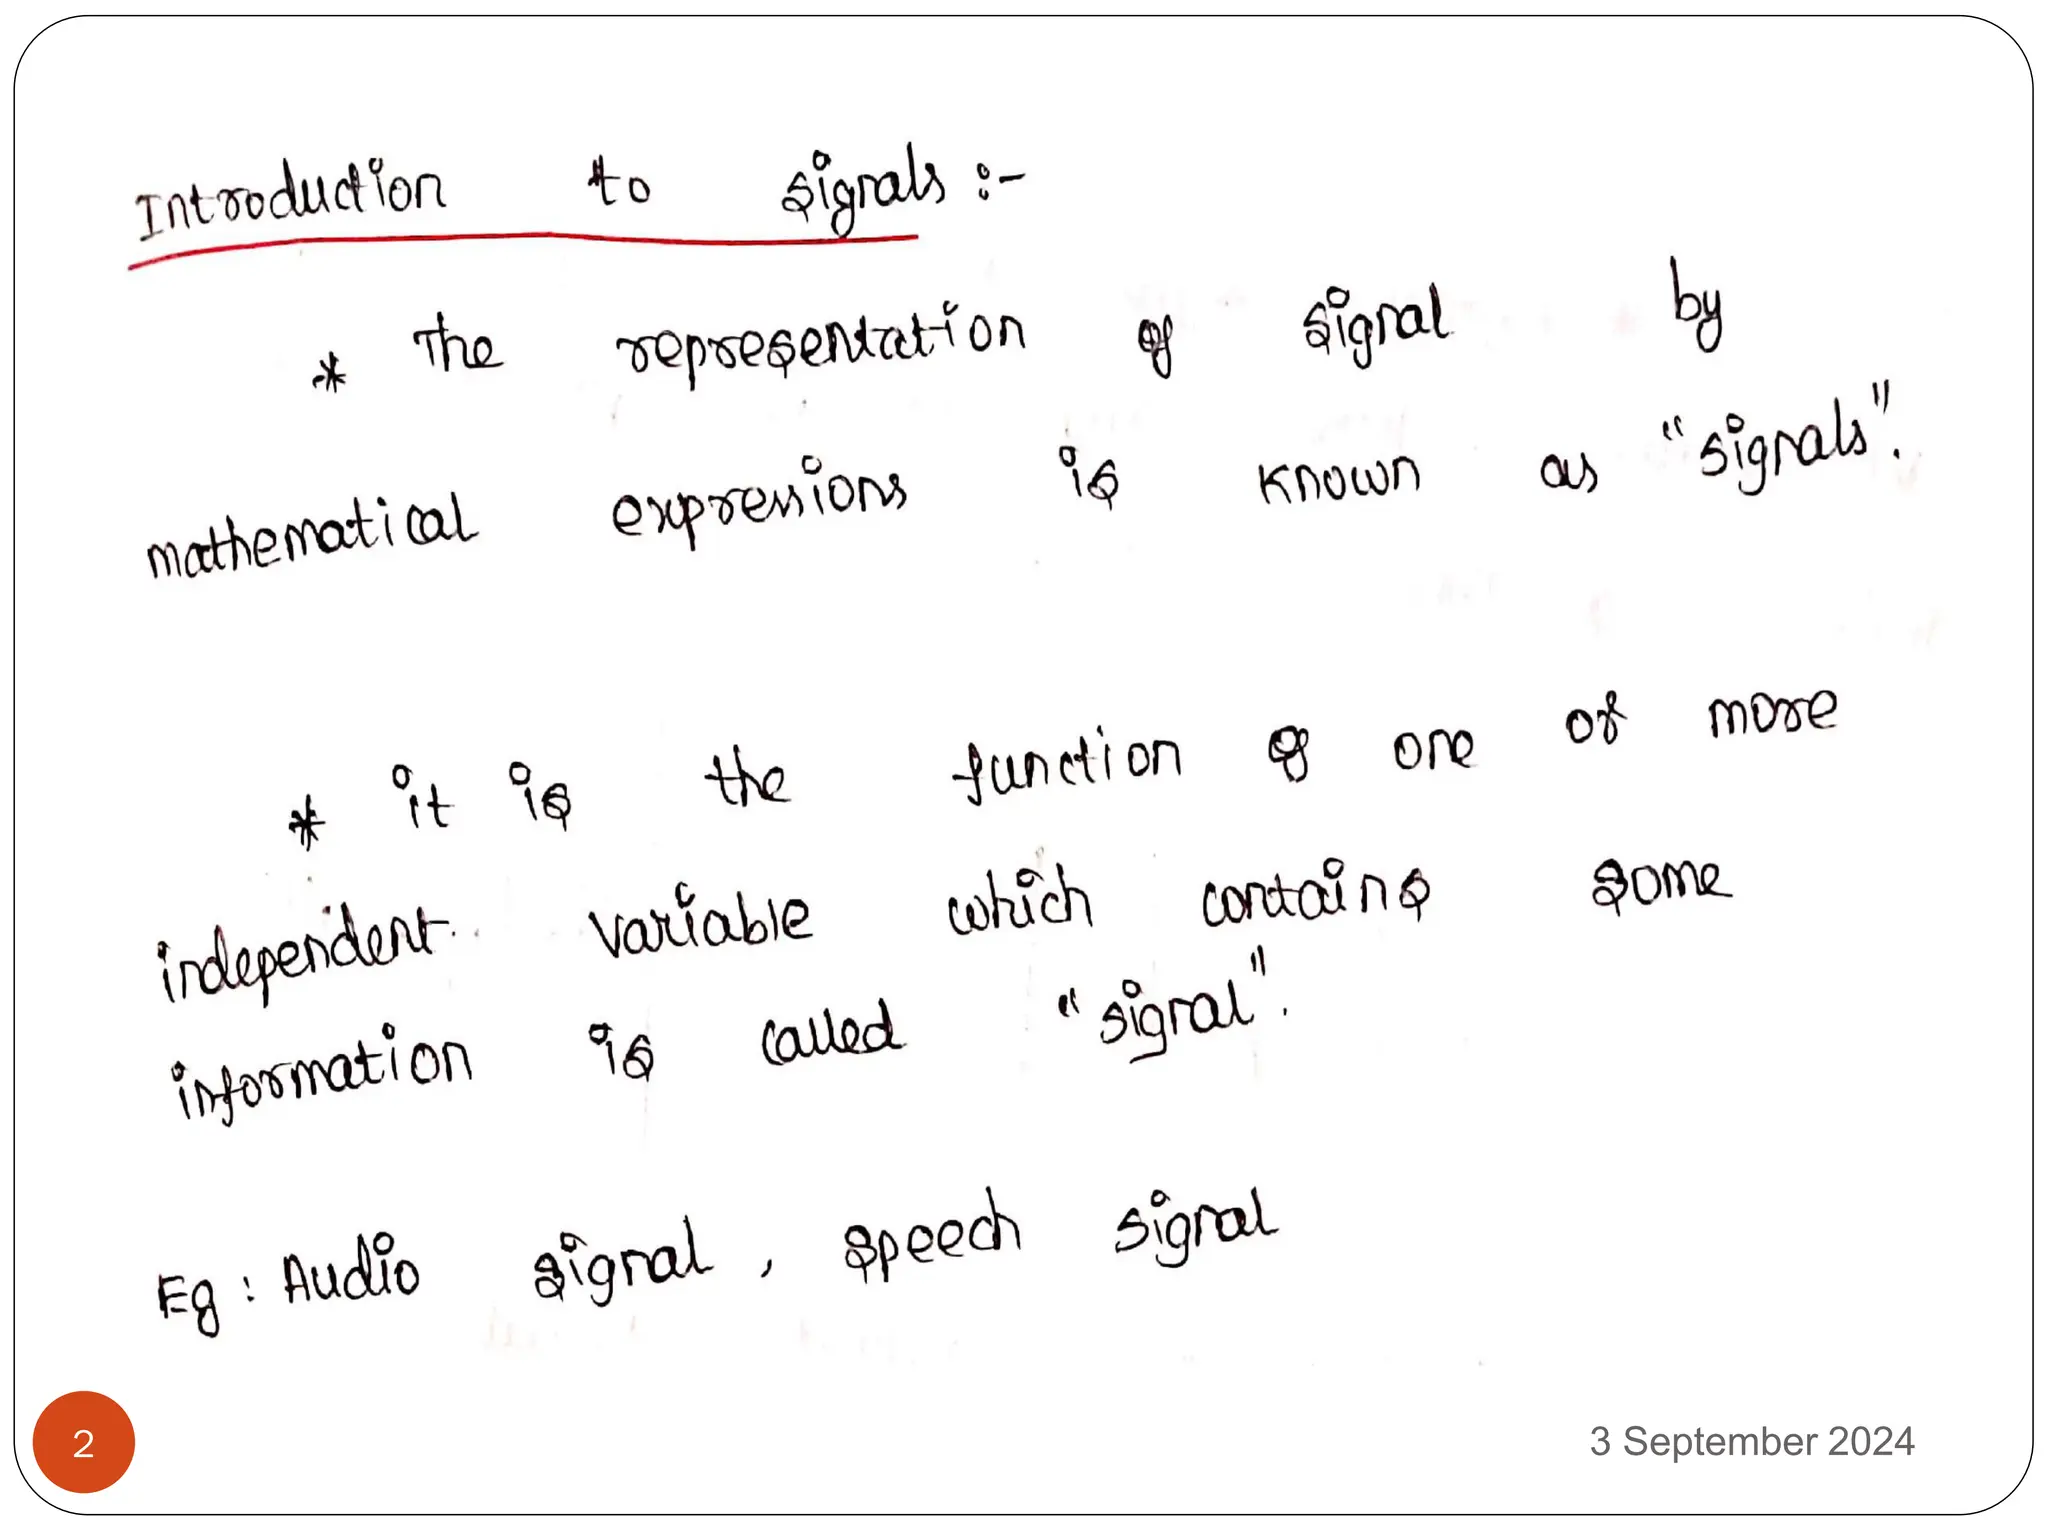 Introduction to signals :-
* The representation of signal by
mathematical expressions is known as "signals".
* it is the function of one or more
independent variable which contains some
information is called "signal".
Eg : Audio signal , speech signal
2
3 September 2024